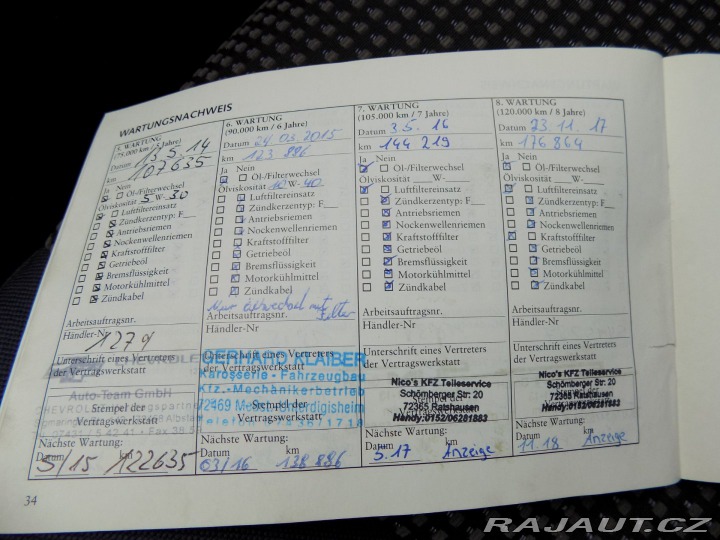 WARTUNGSNACHWEIS
5. WARTUNG
(75.000 km / 5 Jahre)
Datum 13.5.14
km 107635
Ja Nein
Öl-/Filterwechsel
Ölviskosität 5 W- 30
Luftfiltereinsatz
Zündkerzentyp: F__
Antriebsriemen
Nockenwellenriemen
Kraftstofffilter
Getriebeöl
Bremsflüssigkeit
Motorkühlmittel
Zündkabel
Arbeitsauftragsnr.
Händler-Nr
1279
Unterschrift eines Vertreters
der Vertragswerkstatt
Auto-Team GmbH
Stempel der
Vertragswerkstatt
Nächste Wartung:
Datum km
5/15 122635
6. WARTUNG
(90.000 km / 6 Jahre)
Datum 24 03.2015
km 123 886
Ja Nein
Öl-/Filterwechsel
Ölviskosität 10 W- 40
Luftfiltereinsatz
Zündkerzentyp: F__
Antriebsriemen
Nockenwellenriemen
Kraftstofffilter
Getriebeöl
Bremsflüssigkeit
Motorkühlmittel
Zündkabel
Nur Ölwechsel mit
Filter
Arbeitsauftragsnr.
Händler-Nr
Unterschrift eines Vertreters
der Vertragswerkstatt
GERHARD KLAIBER
Karosserie - Fahrzeugbau
Kfz.-Mechanikerbetrieb
Stempel der
Vertragswerkstatt
Nächste Wartung:
Datum km
03/16 138 886
7. WARTUNG
(105.000 km / 7 Jahre)
Datum 3.5. 16
km 144 219
Ja Nein
Öl-/Filterwechsel
Ölviskosität __W-__
Luftfiltereinsatz
Zündkerzentyp: F__
Antriebsriemen
Nockenwellenriemen
Kraftstofffilter
Getriebeöl
Bremsflüssigkeit
Motorkühlmittel
Zündkabel
Arbeitsauftragsnr.
Händler-Nr
Unterschrift eines Vertreters
der Vertragswerkstatt
Nico's KFZ Teileservice
Schömberger Str: 20
72365 Ratshausen
Handy:0152/06281883
Nächste Wartung:
Datum km
5.17 Anzeige
8. WARTUNG
(120.000 km / 8 Jahre)
Datum 23 11. 17
km 176 864
Ja Nein
Öl-/Filterwechsel
Ölviskosität __W-__
Luftfiltereinsatz
Zündkerzentyp: F__
Antriebsriemen
Nockenwellenriemen
Kraftstofffilter
Getriebeöl
Bremsflüssigkeit
Motorkühlmittel
Zündkabel
Arbeitsauftragsnr.
Händler-Nr
Unterschrift eines Vertreters
der Vertragswerkstatt
Nico's KFZ Teileservice
Schömberger Str: 20
72365 Ratshausen
Handy:0152/06281883
Nächste Wartung:
Datum km
11.18 Anzeige
34
RAJAUT.CZ